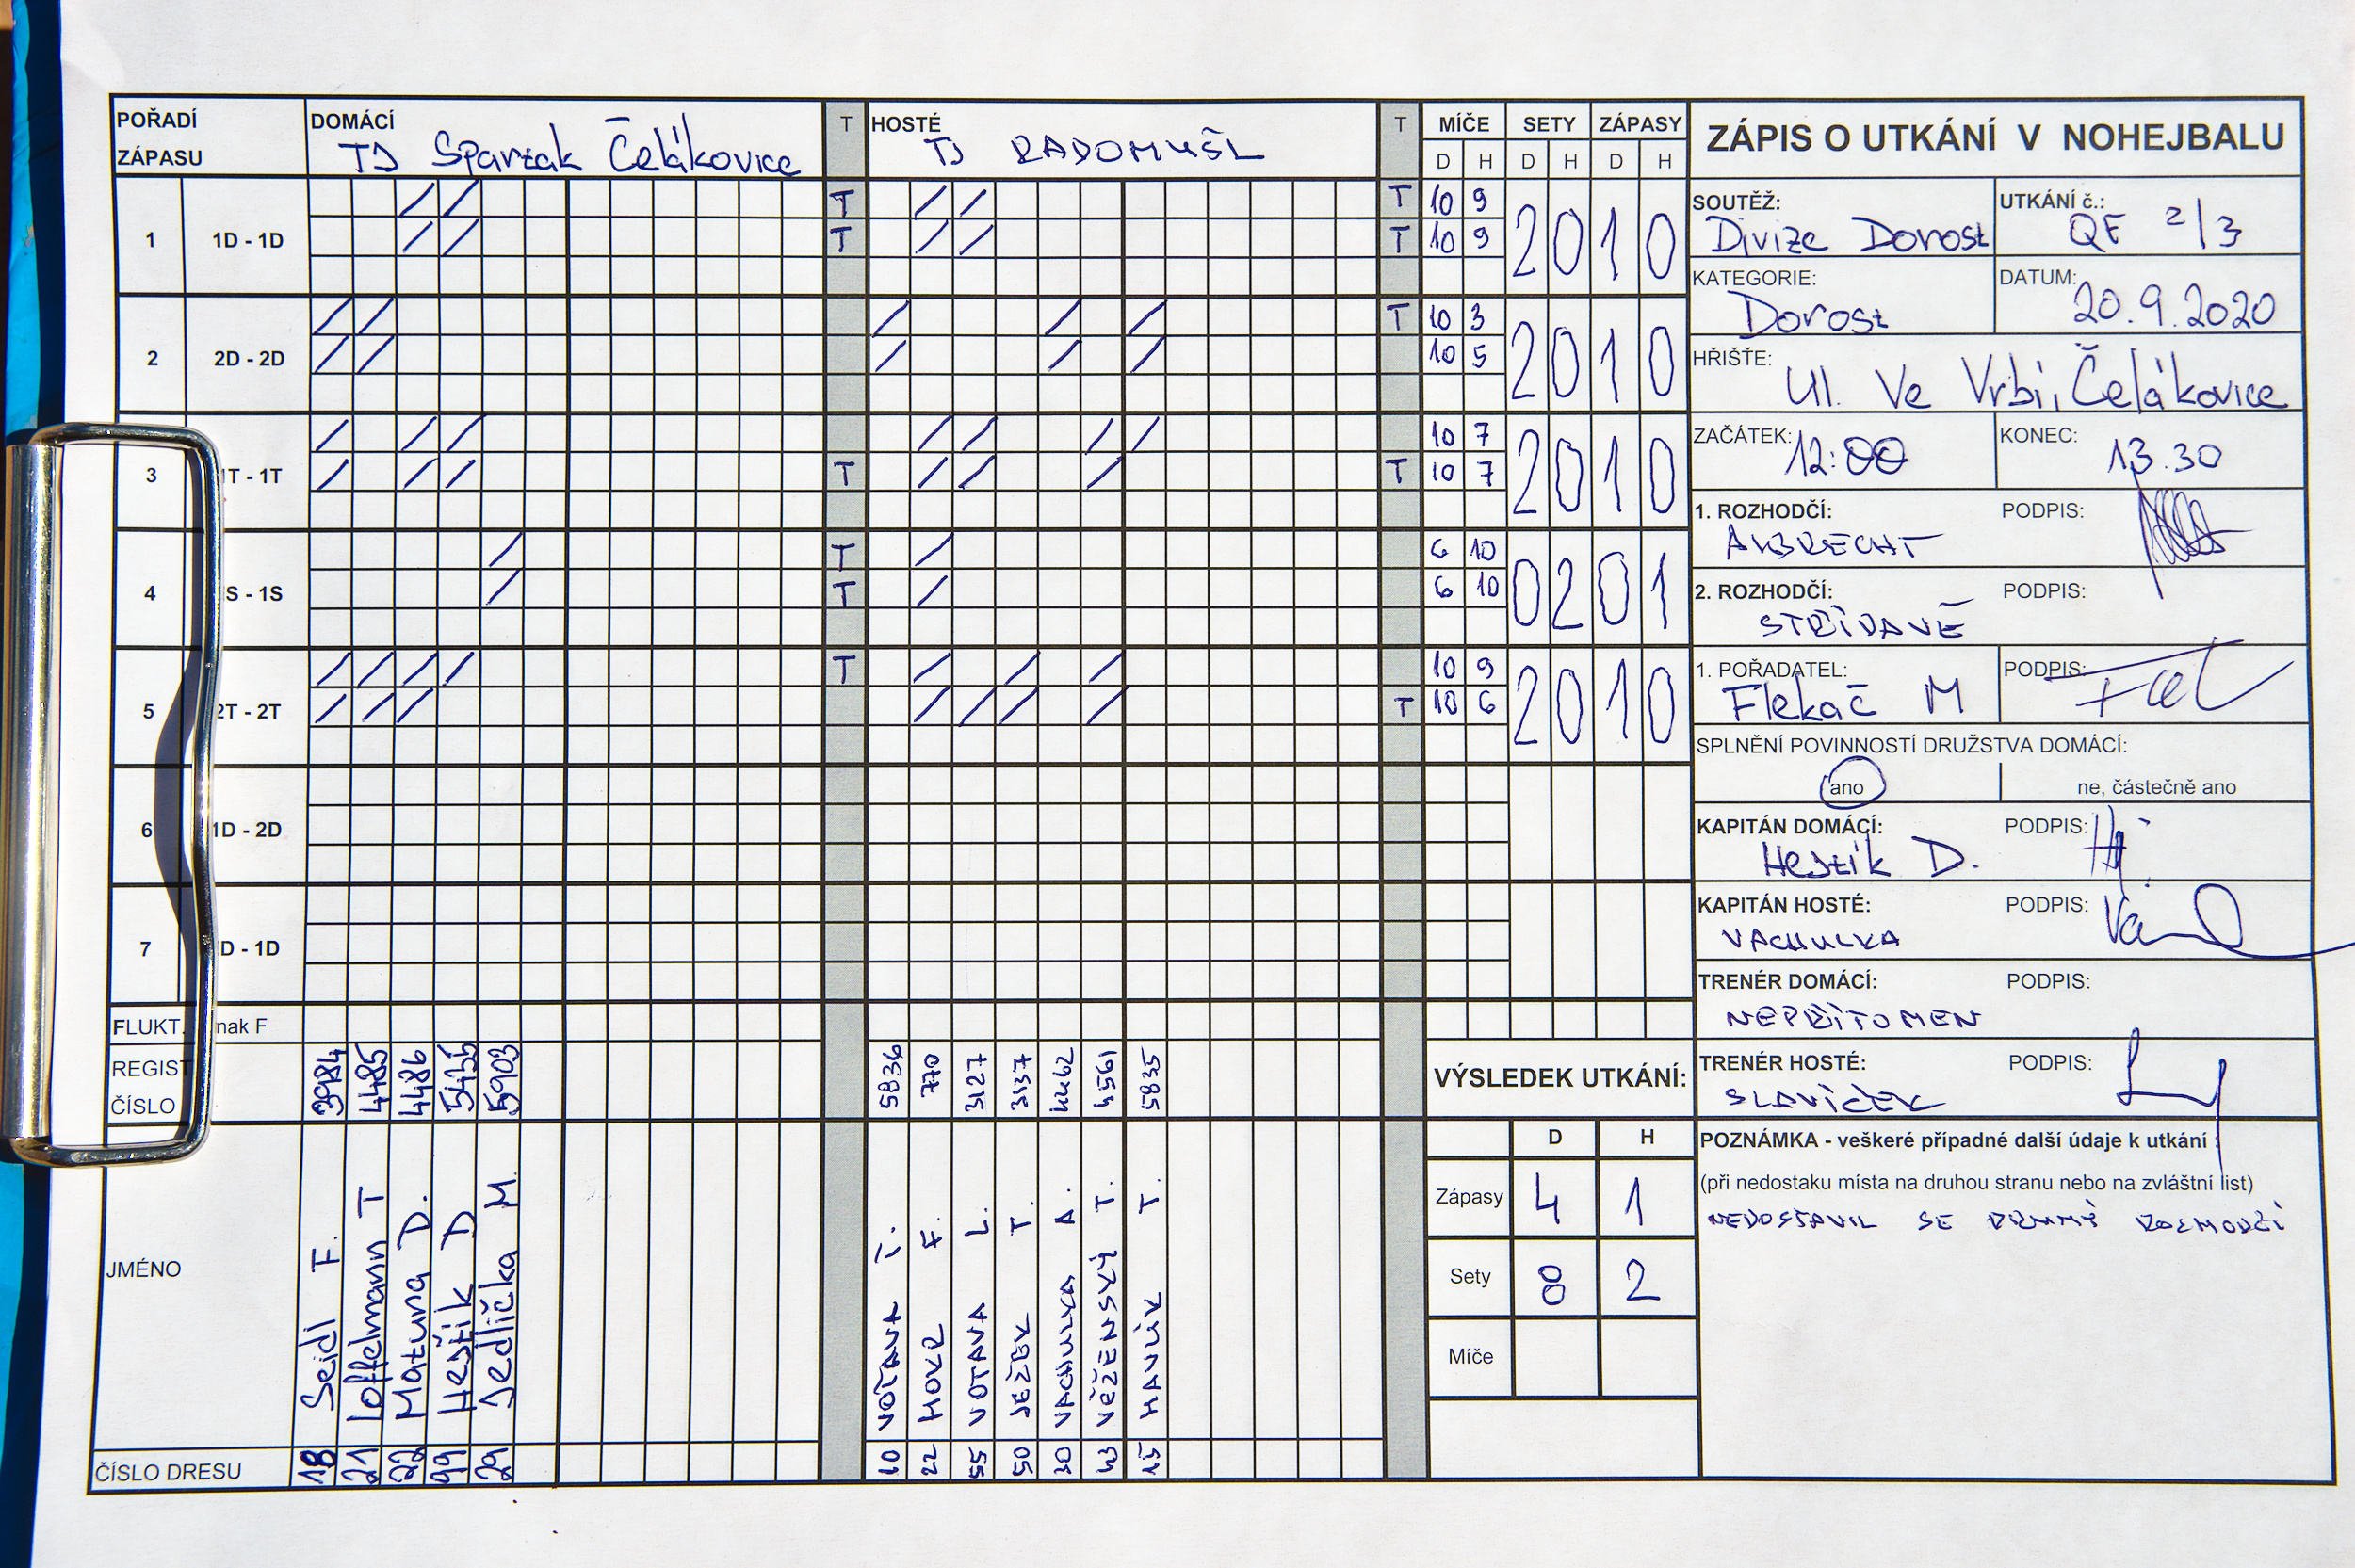 POŘADÍ ZÁPASU
DOMÁCÍ
TJ Spartak Čelákovice
T
HOSTÉ
TJ RADOMYŠL
T
MÍČE SETY ZÁPASY
D H D H D H
1 1D - 1D T T 10 9 2 0 1 0
T T 10 9
2 2D - 2D T 10 3 2 0 1 0
10 5
3 1T - 1T 10 7 2 0 1 0
T T 10 7
4 S - 1S T 6 10 0 2 0 1
T 6 10
5 2T - 2T T 10 9 2 0 1 0
T 10 6
6 1D - 2D
7 D - 1D
FLUKT. nak F
REGIST ČÍSLO
3984 4485 4486 5456 5903
5836 770 3127 3137 4462 4561 5835
JMÉNO
Seidl F.
Loffelmann T
Matuna D.
Hejtík D
Jedlička M.
VOTAVA
HOKR F.
VOTAVA L.
JEŽEK T.
VACHULKA A.
VĚŽENSKÝ T.
HAVLÍK T.
ČÍSLO DRESU
18 21 22 99 29
10 22 55 50 30 13 15
ZÁPIS O UTKÁNÍ V NOHEJBALU
SOUTĚŽ:
Divize Dorost
UTKÁNÍ č.:
QF 2/3
KATEGORIE:
Dorost
DATUM:
20.9.2020
HŘIŠTĚ:
Ul. Ve Vrbí, Čelákovice
ZAČÁTEK: 12:00
KONEC: 13.30
1. ROZHODČÍ: PODPIS:
2. ROZHODČÍ: PODPIS:
STŘÍDAVĚ
1. POŘADATEL: PODPIS:
Flekač M
SPLNĚNÍ POVINNOSTÍ DRUŽSTVA DOMÁCÍ:
ano
ne, částečně ano
KAPITÁN DOMÁCÍ: PODPIS:
Hejtík D.
KAPITÁN HOSTÉ: PODPIS:
VACHULKA
TRENÉR DOMÁCÍ: PODPIS:
NEPŘÍTOMEN
TRENÉR HOSTÉ: PODPIS:
SLAVÍČEK
VÝSLEDEK UTKÁNÍ:
D H
Zápasy 4 1
Sety 8 2
Míče
POZNÁMKA - veškeré případné další údaje k utkání :
(při nedostaku místa na druhou stranu nebo na zvláštní list)
NEDOSTAVIL SE DRUHÝ ROZHODČÍ